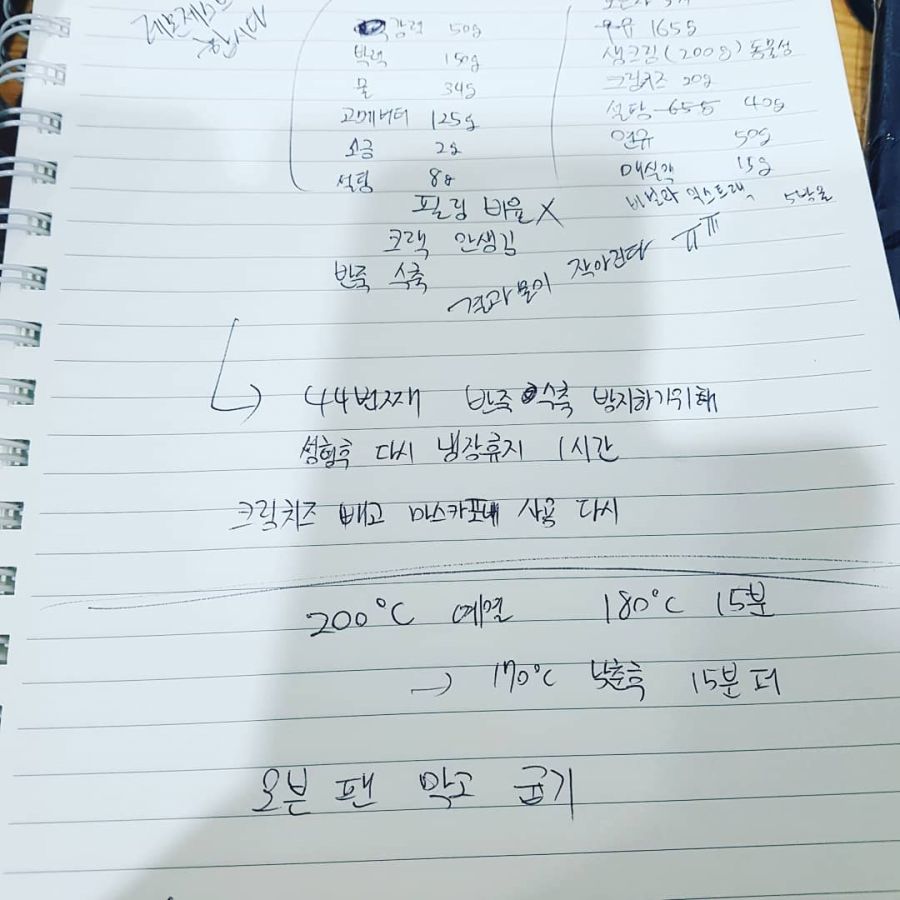 레몬제스트
강력 50g
박력 150g
물 34g
고메버터 125g
소금 2g
설탕 8g
우유 165g
생크림(200g) 동물성
크림치즈 20g
설탕 65g 40g
연유 50g
매실액 15g
바닐라 익스트랙 5방울
필링 비율 X
크랙 안생김
반죽 수축
결과물이 작아진다 ㅠㅠ
44번째 반죽 수축 방지하기위해
성형후 다시 냉장휴지 1시간
크림치즈 빼고 마스카포네 사용 다시
200°C 예열 180°C 15분
→ 170°C 낮춘후 15분 더
오븐 팬 막고 굽기